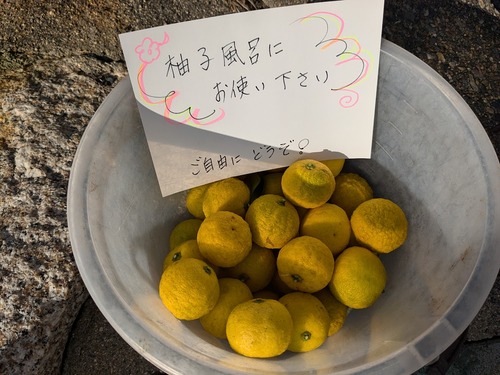 柚子風呂に
お使い下さい
ご自由に どうぞ!